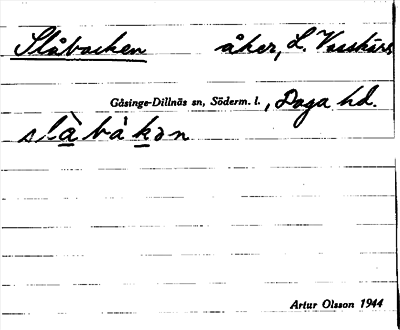 Slåbacken åker, L. Vasskärs
Gåsinge-Dillnäs sn, Söderm. l., Daga hd.
slàbàkən
Artur Olsson 1944